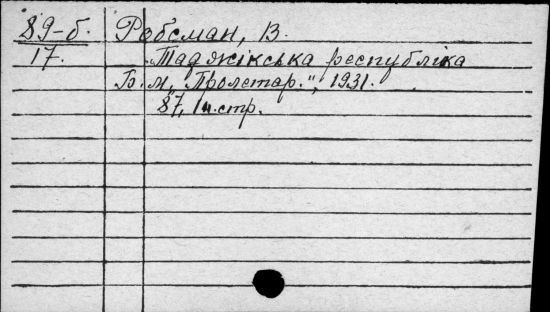 89-б. Робсман, В.
17. Таджікська республіка
Б. м, „Пролетар.", 1931.
87, 1н. стр.